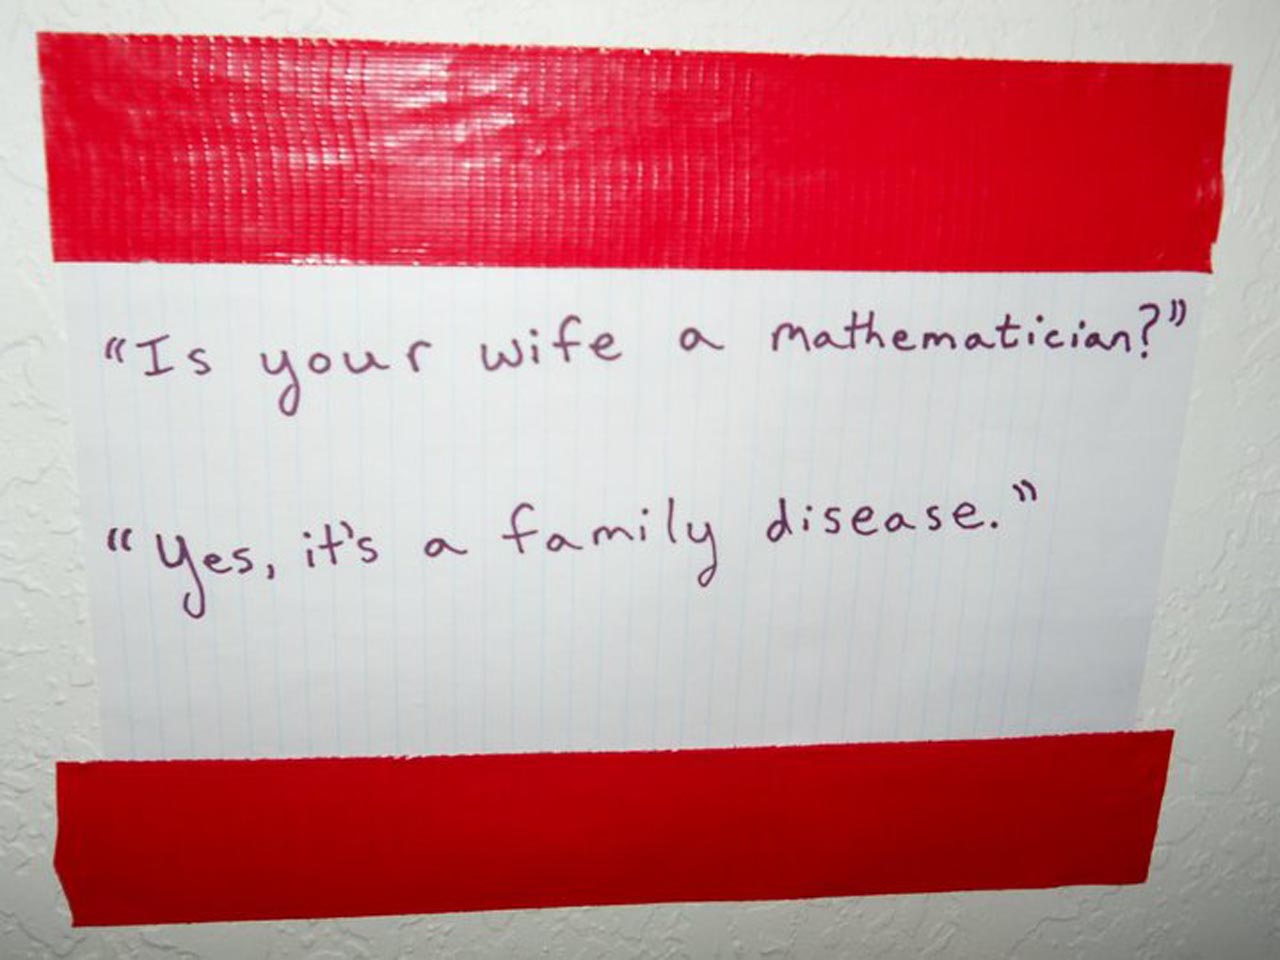 “Is your wife a mathematician?”
“Yes, it's a family disease.”